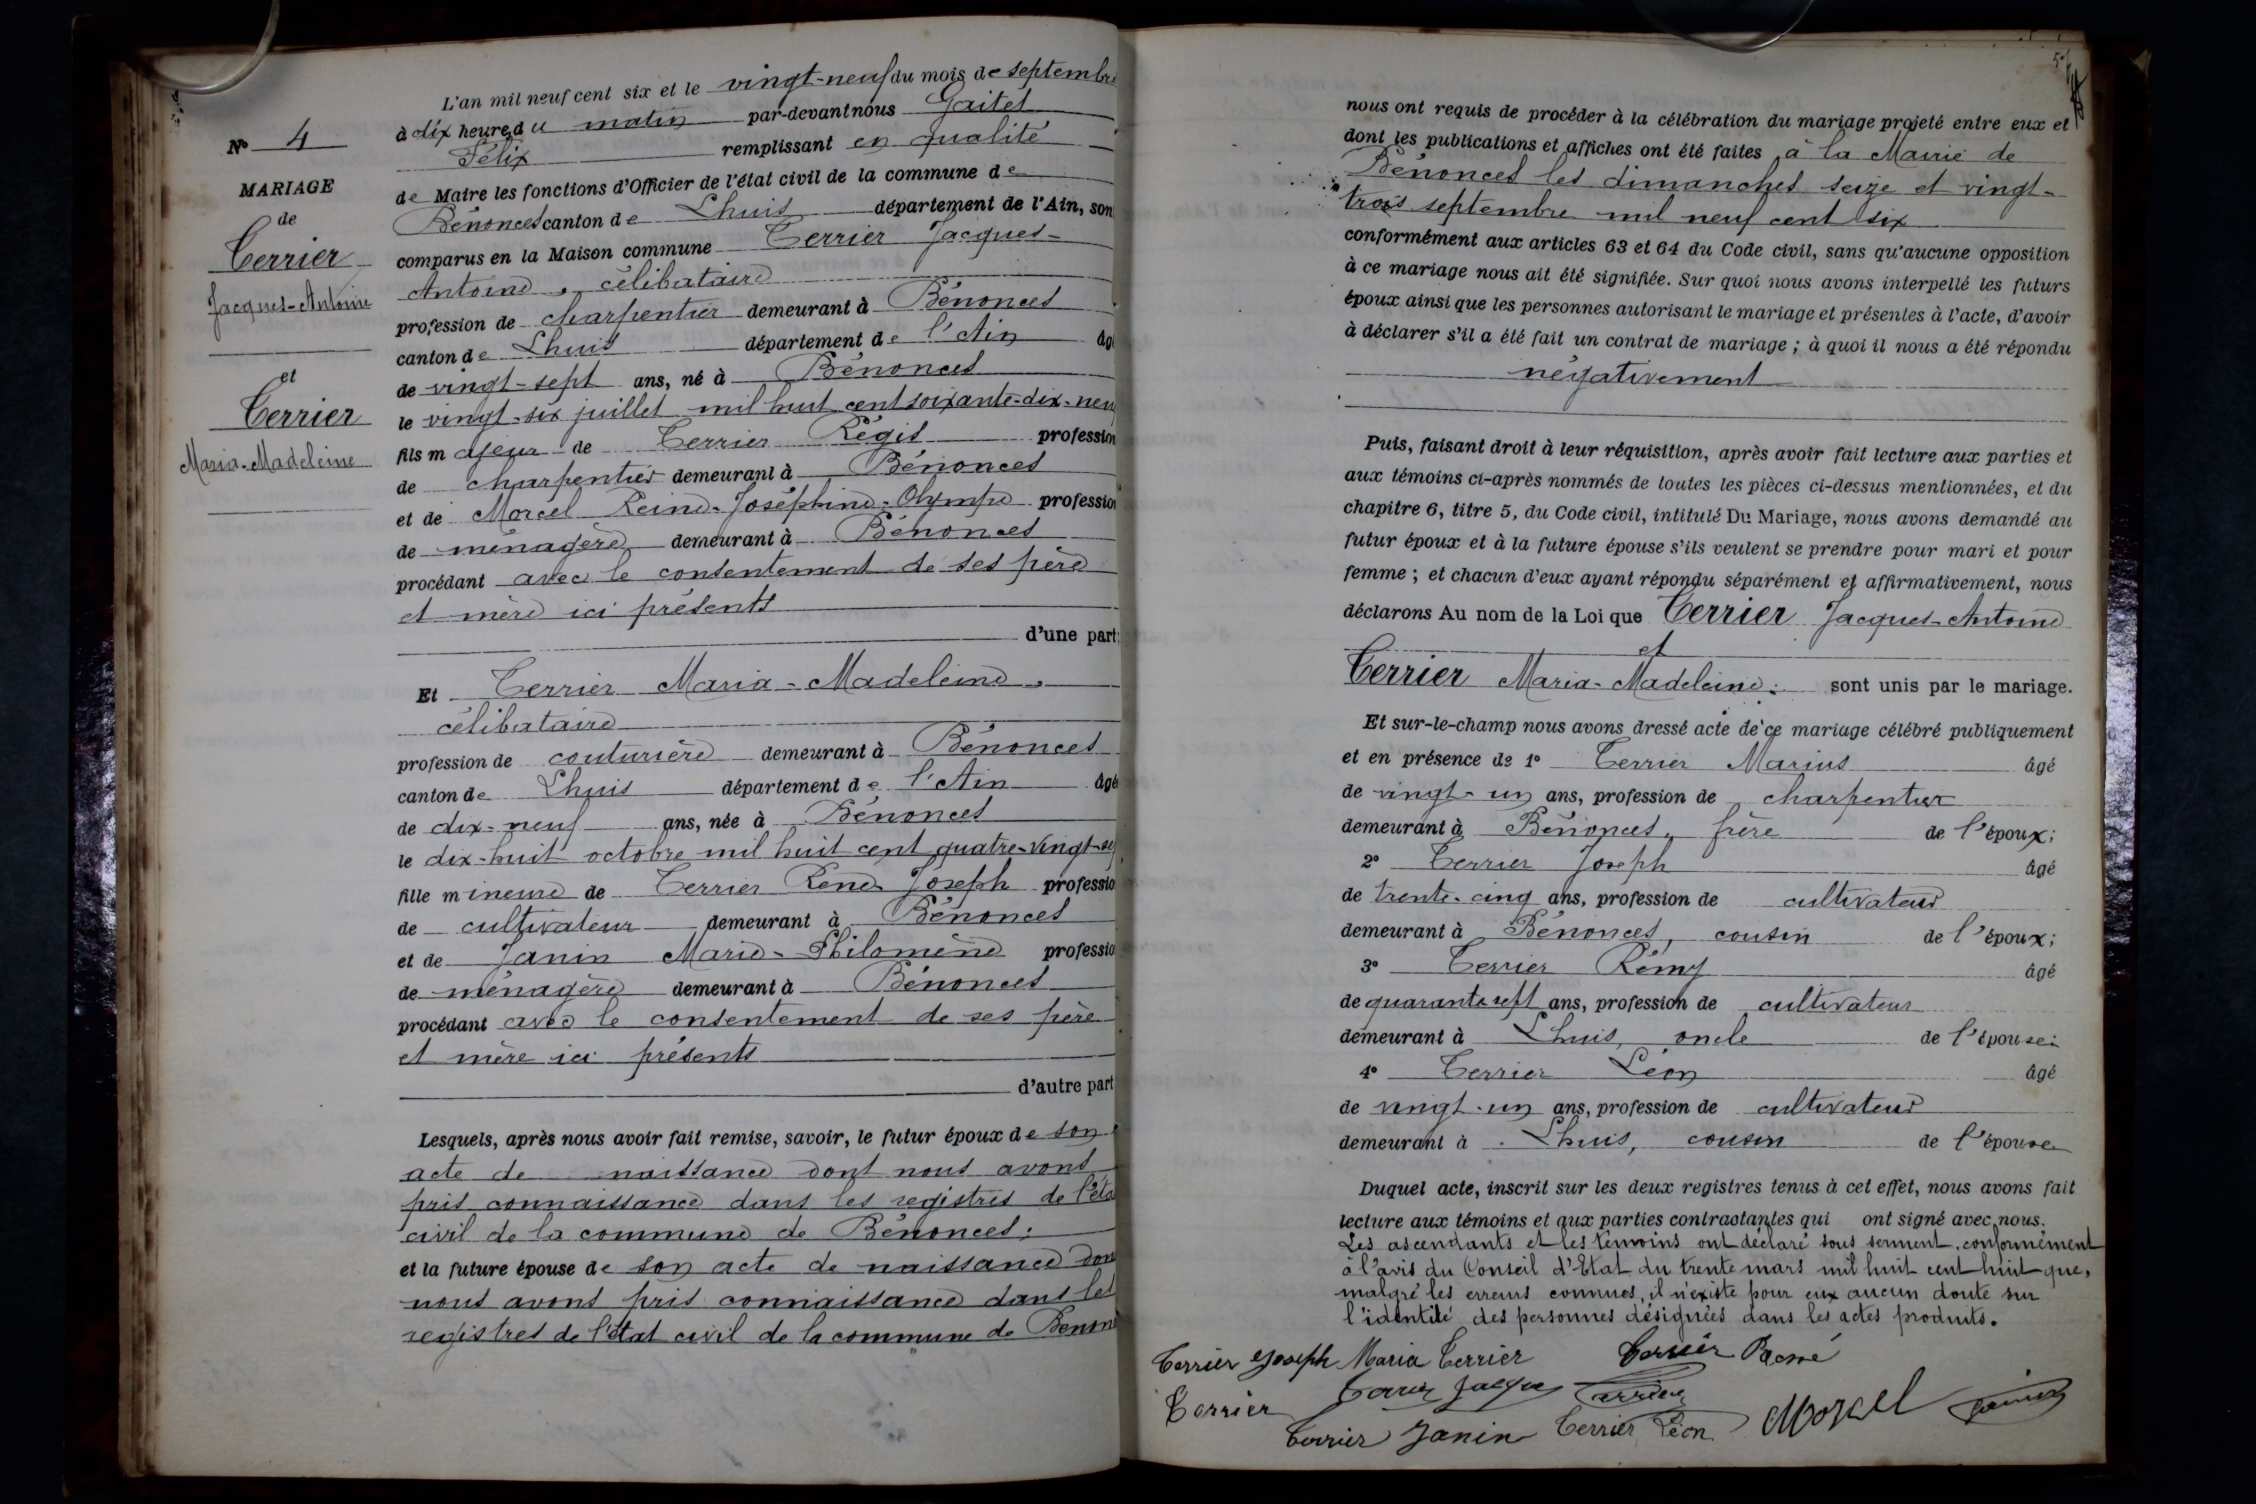 N° 4
MARIAGE
de
Terrier
Jacques-Antoine
et
Terrier
Maria-Madeleine
L'an mil neuf cent six et le vingt-neuf du mois de septembre
à dix heures du matin par-devant nous Gaitet
Félix remplissant en qualité
de Maire les fonctions d'Officier de l'état civil de la commune de
Bénonces canton de Lhuis département de l'Ain, son
comparus en la Maison commune Terrier Jacques-
Antoine, célibataire
profession de charpentier demeurant à Bénonces
canton de Lhuis département de l'Ain âgé
de vingt-sept ans, né à Bénonces
le vingt-six juillet mil huit cent soixante-dix-neuf
fils majeur de Terrier Régis profession
de charpentier demeurant à Bénonces
et de Morcel Reine-Joséphine-Olympe profession
de ménagère demeurant à Bénonces
procédant avec le consentement de ses père
et mère ici présents
d'une part;
Et Terrier Maria-Madeleine,
célibataire
profession de couturière demeurant à Bénonces
canton de Lhuis département de l'Ain âgé
de dix-neuf ans, née à Bénonces
le dix-huit octobre mil huit cent quatre-vingt-se
fille mineure de Terrier René Joseph professio
de cultivateur demeurant à Bénonces
et de Janin Marie-Philomène professio
de ménagère demeurant à Bénonces
procédant avec le consentement de ses père
et mère ici présents
d'autre part
Lesquels, après nous avoir fait remise, savoir, le futur époux de son
acte de naissance dont nous avons
pris connaissance dans les registres de l'éta
civil de la commune de Bénonces;
et la future épouse de son acte de naissance don
nous avons pris connaissance dans les
registres de l'état civil de la commune de Benon
nous ont requis de procéder à la célébration du mariage projeté entre eux et
dont les publications et affiches ont été faites à la Mairie de
Bénonces les dimanches seize et vingt-
trois septembre mil neuf cent six
conformément aux articles 63 et 64 du Code civil, sans qu'aucune opposition
à ce mariage nous ait été signifiée. Sur quoi nous avons interpellé les futurs
époux ainsi que les personnes autorisant le mariage et présentes à l'acte, d'avoir
à déclarer s'il a été fait un contrat de mariage ; à quoi il nous a été répondu
négativement
Puis, faisant droit à leur réquisition, après avoir fait lecture aux parties et
aux témoins ci-après nommés de toutes les pièces ci-dessus mentionnées, et du
chapitre 6, titre 5, du Code civil, intitulé Du Mariage, nous avons demandé au
futur époux et à la future épouse s'ils veulent se prendre pour mari et pour
femme ; et chacun d'eux ayant répondu séparément et affirmativement, nous
déclarons Au nom de la Loi que Terrier Jacques-Antoine
et
Terrier Maria-Madeleine: sont unis par le mariage.
Et sur-le-champ nous avons dressé acte de ce mariage célébré publiquement
et en présence de 1° Terrier Marius âgé
de vingt-un ans, profession de charpentier
demeurant à Bénonces, frère de l'époux;
2° Terrier Joseph âgé
de trente-cinq ans, profession de cultivateur
demeurant à Bénonces, cousin de l'époux;
3° Terrier Rémy âgé
de quarante sept ans, profession de cultivateur
demeurant à Lhuis, oncle de l'épouse;
4° Terrier Léon âgé
de vingt-un ans, profession de cultivateur
demeurant à Lhuis, cousin de l'épouse
Duquel acte, inscrit sur les deux registres tenus à cet effet, nous avons fait
lecture aux témoins et aux parties contractantes qui ont signé avec nous.
Les ascendants et les témoins ont déclaré sous serment, conformément
à l'avis du Conseil d'Etat du trente mars mil huit cent huit que,
malgré les erreurs connues, il n'existe pour eux aucun doute sur
l'identité des personnes désignées dans les actes produits.
Terrier Joseph Maria Terrier Terrier René
Terrier Terrier Jacques Terrier
Terrier Janin Terrier Léon Morcel